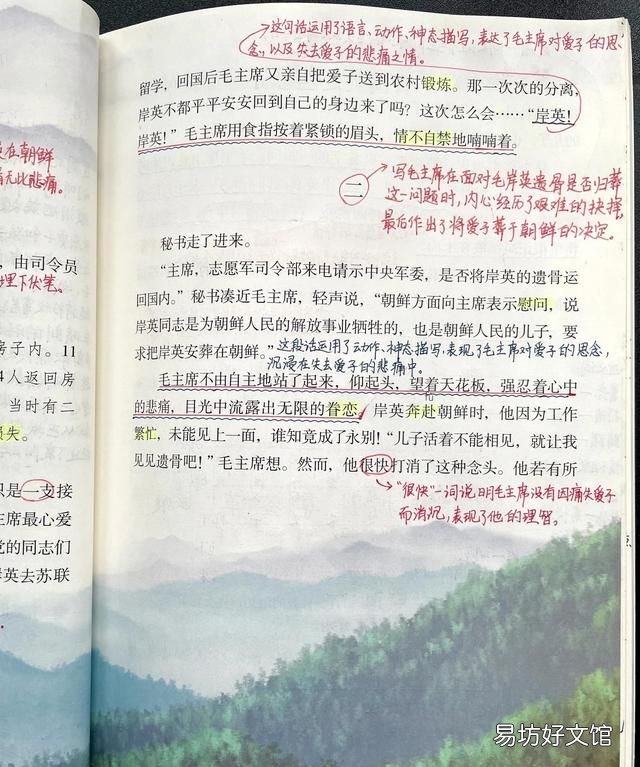 这句话运用了语言、动作、神态描写，表达了毛主席对爱子的思
念，以及失去爱子的悲痛之情。
留学，回国后毛主席又亲自把爱子送到农村锻炼。那一次次的分离，
岸英不都平平安安回到自己的身边来了吗？这次怎么会……“岸英！
岸英！”毛主席用食指按着紧锁的眉头，情不自禁地喃喃着。
二
写毛主席在面对毛岸英遗骨是否归葬
这一问题时，内心经历了艰难的抉择，
最后作出了将爱子葬于朝鲜的决定。
秘书走了进来。
“主席，志愿军司令部来电请示中央军委，是否将岸英的遗骨运
回国内。”秘书凑近毛主席，轻声说，“朝鲜方面向主席表示慰问，说
岸英同志是为朝鲜人民的解放事业牺牲的，也是朝鲜人民的儿子，要
求把岸英安葬在朝鲜。”
这段话运用了动作、神态描写，表现了毛主席对爱子的思念，
沉浸在失去爱子的悲痛中。
毛主席不由自主地站了起来，仰起头，望着天花板，强忍着心中
的悲痛，目光中流露出无限的眷恋。岸英奔赴朝鲜时，他因为工作
繁忙，未能见上一面，谁知竟成了永别！“儿子活着不能相见，就让我
见见遗骨吧！”毛主席想。然而，他很快打消了这种念头。他若有所
“很快”一词说明毛主席没有因痛失爱子
而消沉，表现了他的理智。
在朝鲜
无比悲痛。
，由司令员
埋下伏笔。
房子内。11
4人返回房
当时有二
损失。
只是一支接
主席最心爱
党的同志们
岸英去苏联
易坊好文馆